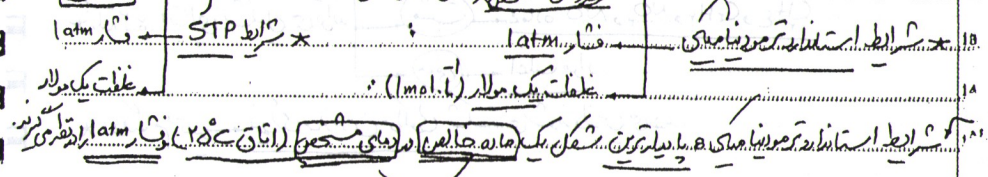 * شرایط استاندارد ترمودینامیکی ← فشار 1atm : * شرایط STP ← فشار 1atm
غلظت یک مولار (1mol.) : غلظت یک مولار
شرایط استاندارد ترمودینامیکی پایدارترین شکل یک ماده خالص در دمای مشخص (اتاق ۲۵°C) و فشار 1atm را در نظر می گیرند.